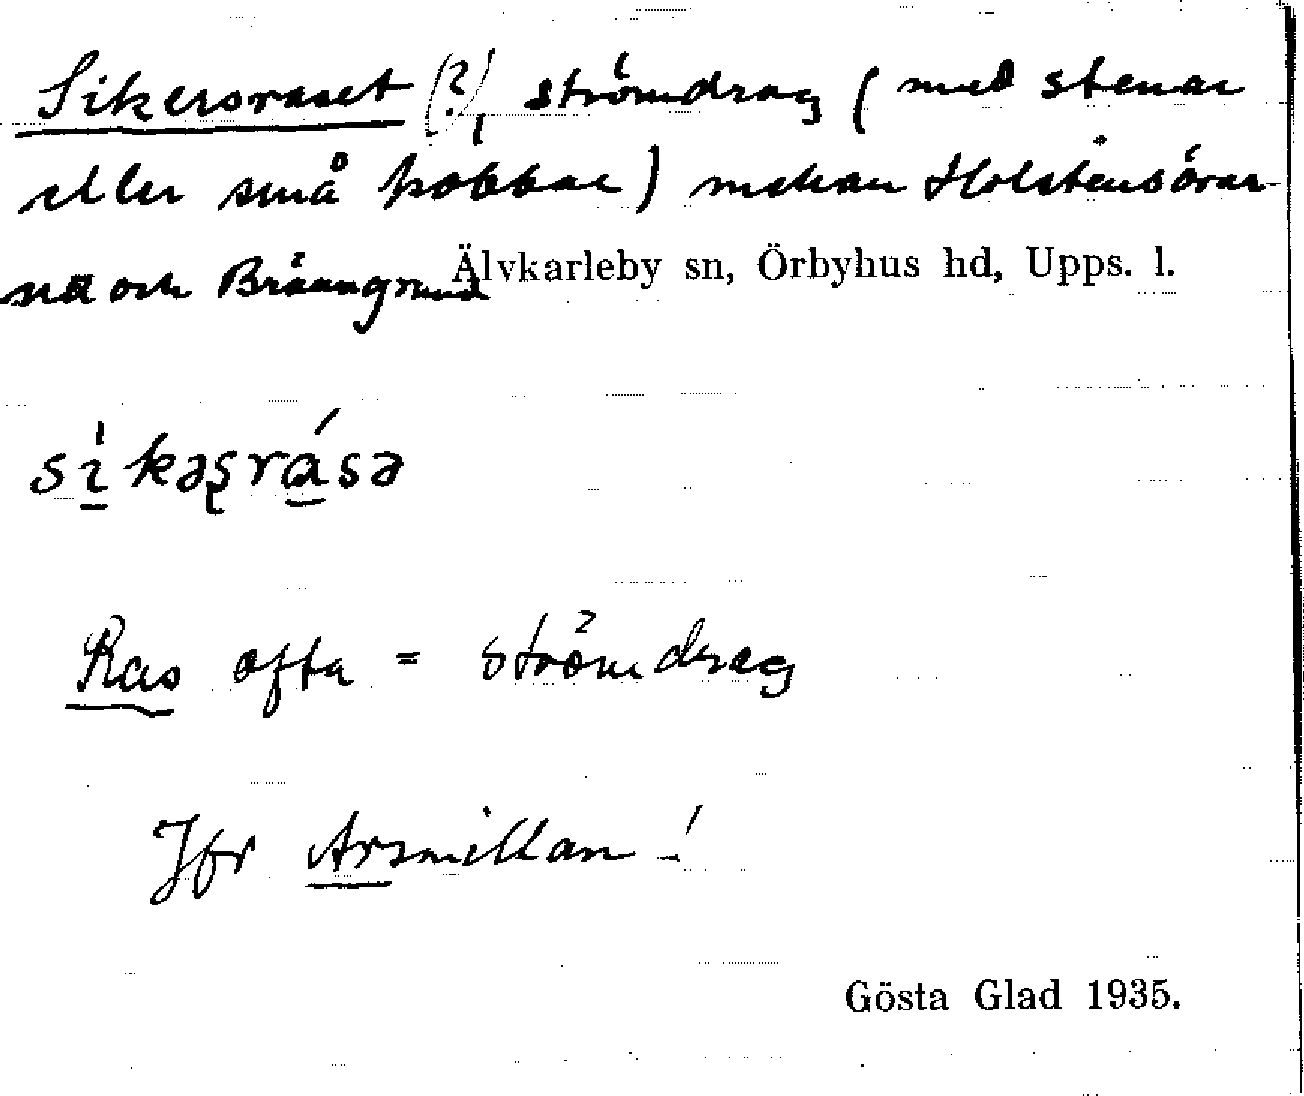 Sikersraset (?), strömdrag (med stenar
eller små kobbar) mellan Holstensörar-
na och Bränngrund
Älvkarleby sn, Örbyhus hd, Upps. l.
sìkəʂrásə
Ras ofta = strömdrag
Jfr Arsmillan!
Gösta Glad 1935.